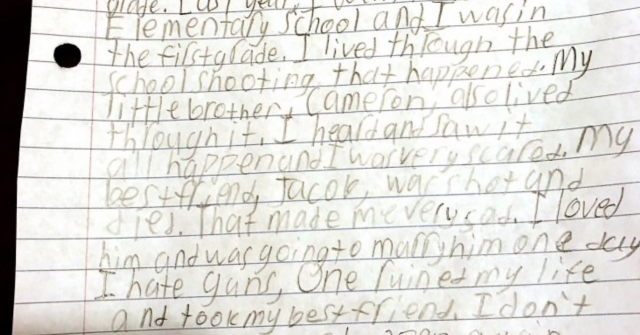 grade. Last year, I
Elementary School and I was in
the first grade. I lived through the
school shooting that happened. My
little brother, Cameron, also lived
through it. I heard and saw it
all happen and I was very scared. My
best friend, Jacob, was shot and
died. That made me very sad. I loved
him and was going to marry him one day
I hate guns. One ruined my life
and took my best friend. I don't